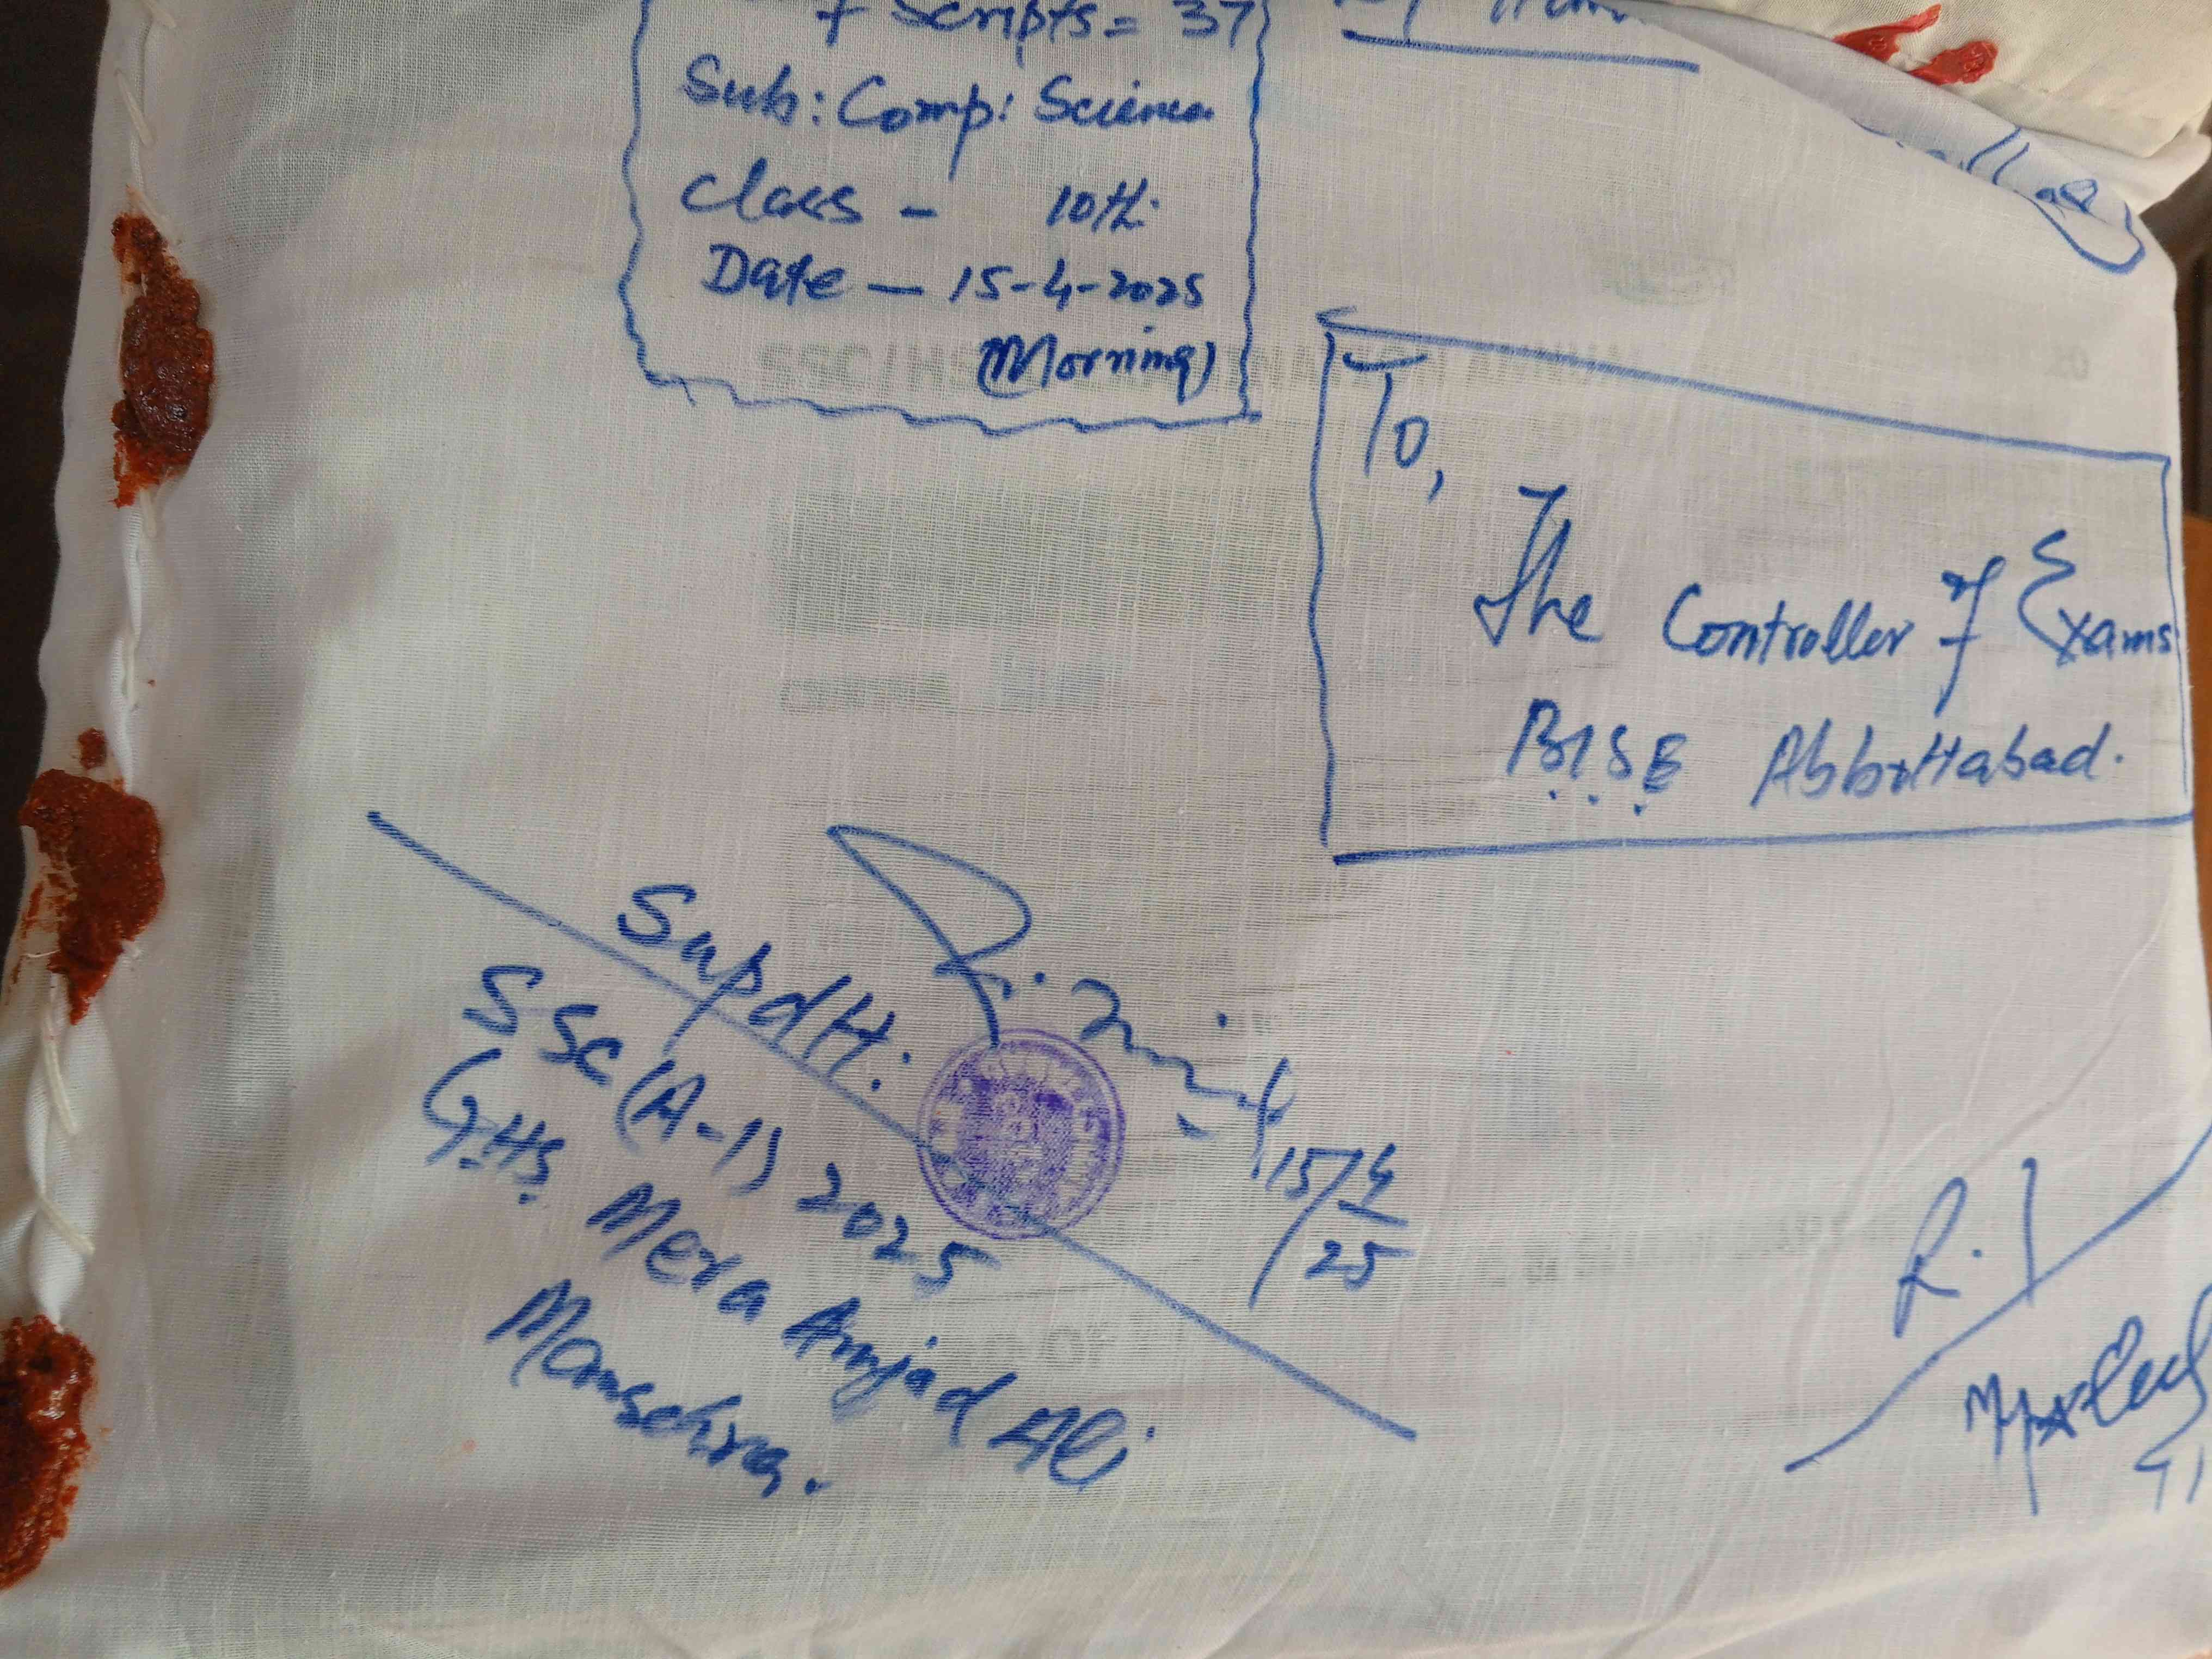 of Scripts = 37
Sub: Comp: Science
Class - 10th
Date - 15-4-2025
(Morning)
To,
The Controller of Exams
BISE Abbottabad.
Supdtt:
SSC (A-1) 2025
GHS Mera Amjad Ali
Mansehra.
15/4/25
R.I